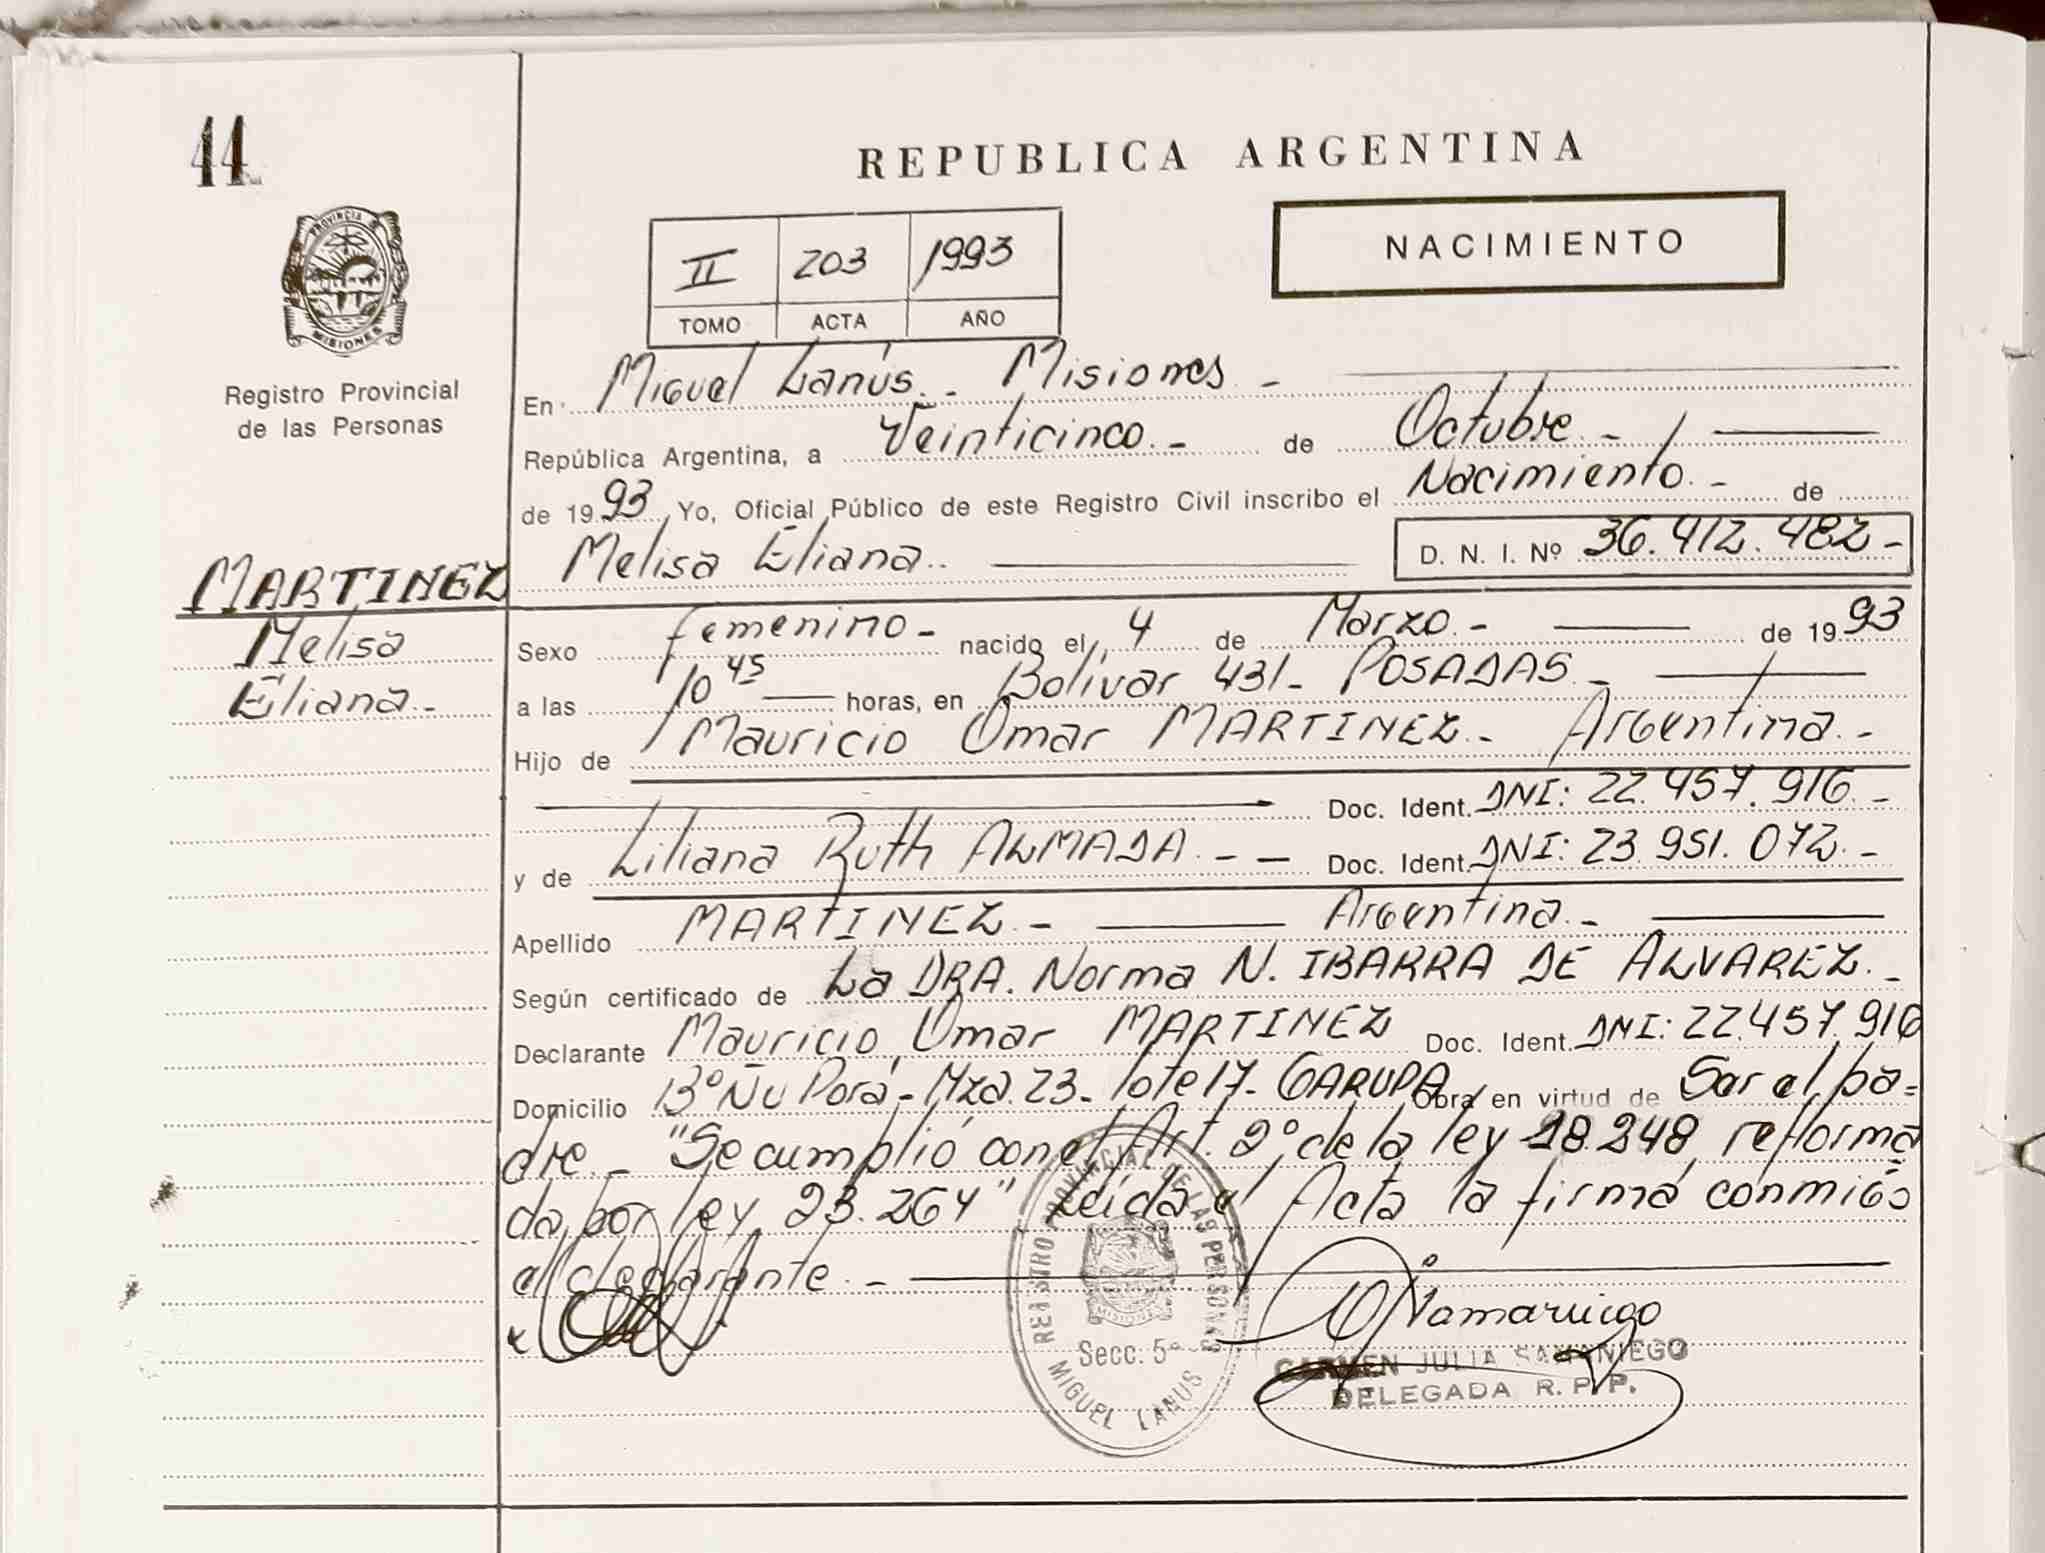 44
PROVINCIA DE
MISIONES
Registro Provincial
de las Personas
REPUBLICA ARGENTINA
NACIMIENTO
II 203 1993
TOMO ACTA AÑO
En Miguel Lanús.- Misiones -
República Argentina, a Veinticinco.- de Octubre.-
de 1993 Yo, Oficial Público de este Registro Civil inscribo el Nacimiento.- de
Melisa Eliana.. D. N. I. Nº 36.412.482-
MARTINEZ
Melisa
Eliana.-
Sexo femenino- nacido el, 4 de Marzo.- de 1993
a las 10 45 horas, en Bolívar 431- POSADAS.-
Hijo de Mauricio Omar MARTINEZ.- Argentina.-
Doc. Ident. DNI: 22.457.916.-
y de Liliana Ruth ALMADA.-- Doc. Ident. DNI: 23.951.072.-
Apellido MARTINEZ.- Argentina.-
Según certificado de La DRA. Norma N. IBARRA DE ALVAREZ.-
Declarante Mauricio Omar MARTINEZ Doc. Ident. DNI: 22.457.916
Domicilio Bº Ñu Porá- Mza. 23- lote 17- GARUPA Obra en virtud de Ser el pa=
dre.- "Se cumplió con el Art. 2º de la ley 18.248, reforma
da por ley 23.264" Leída el Acta la firma conmigo
el declarante.-
REGISTRO PROVINCIAL DE LAS PERSONAS
MISIONES
Secc. 5º
MIGUEL LANUS
CARMEN JULIA SAMANIEGO
DELEGADA R. P. P.